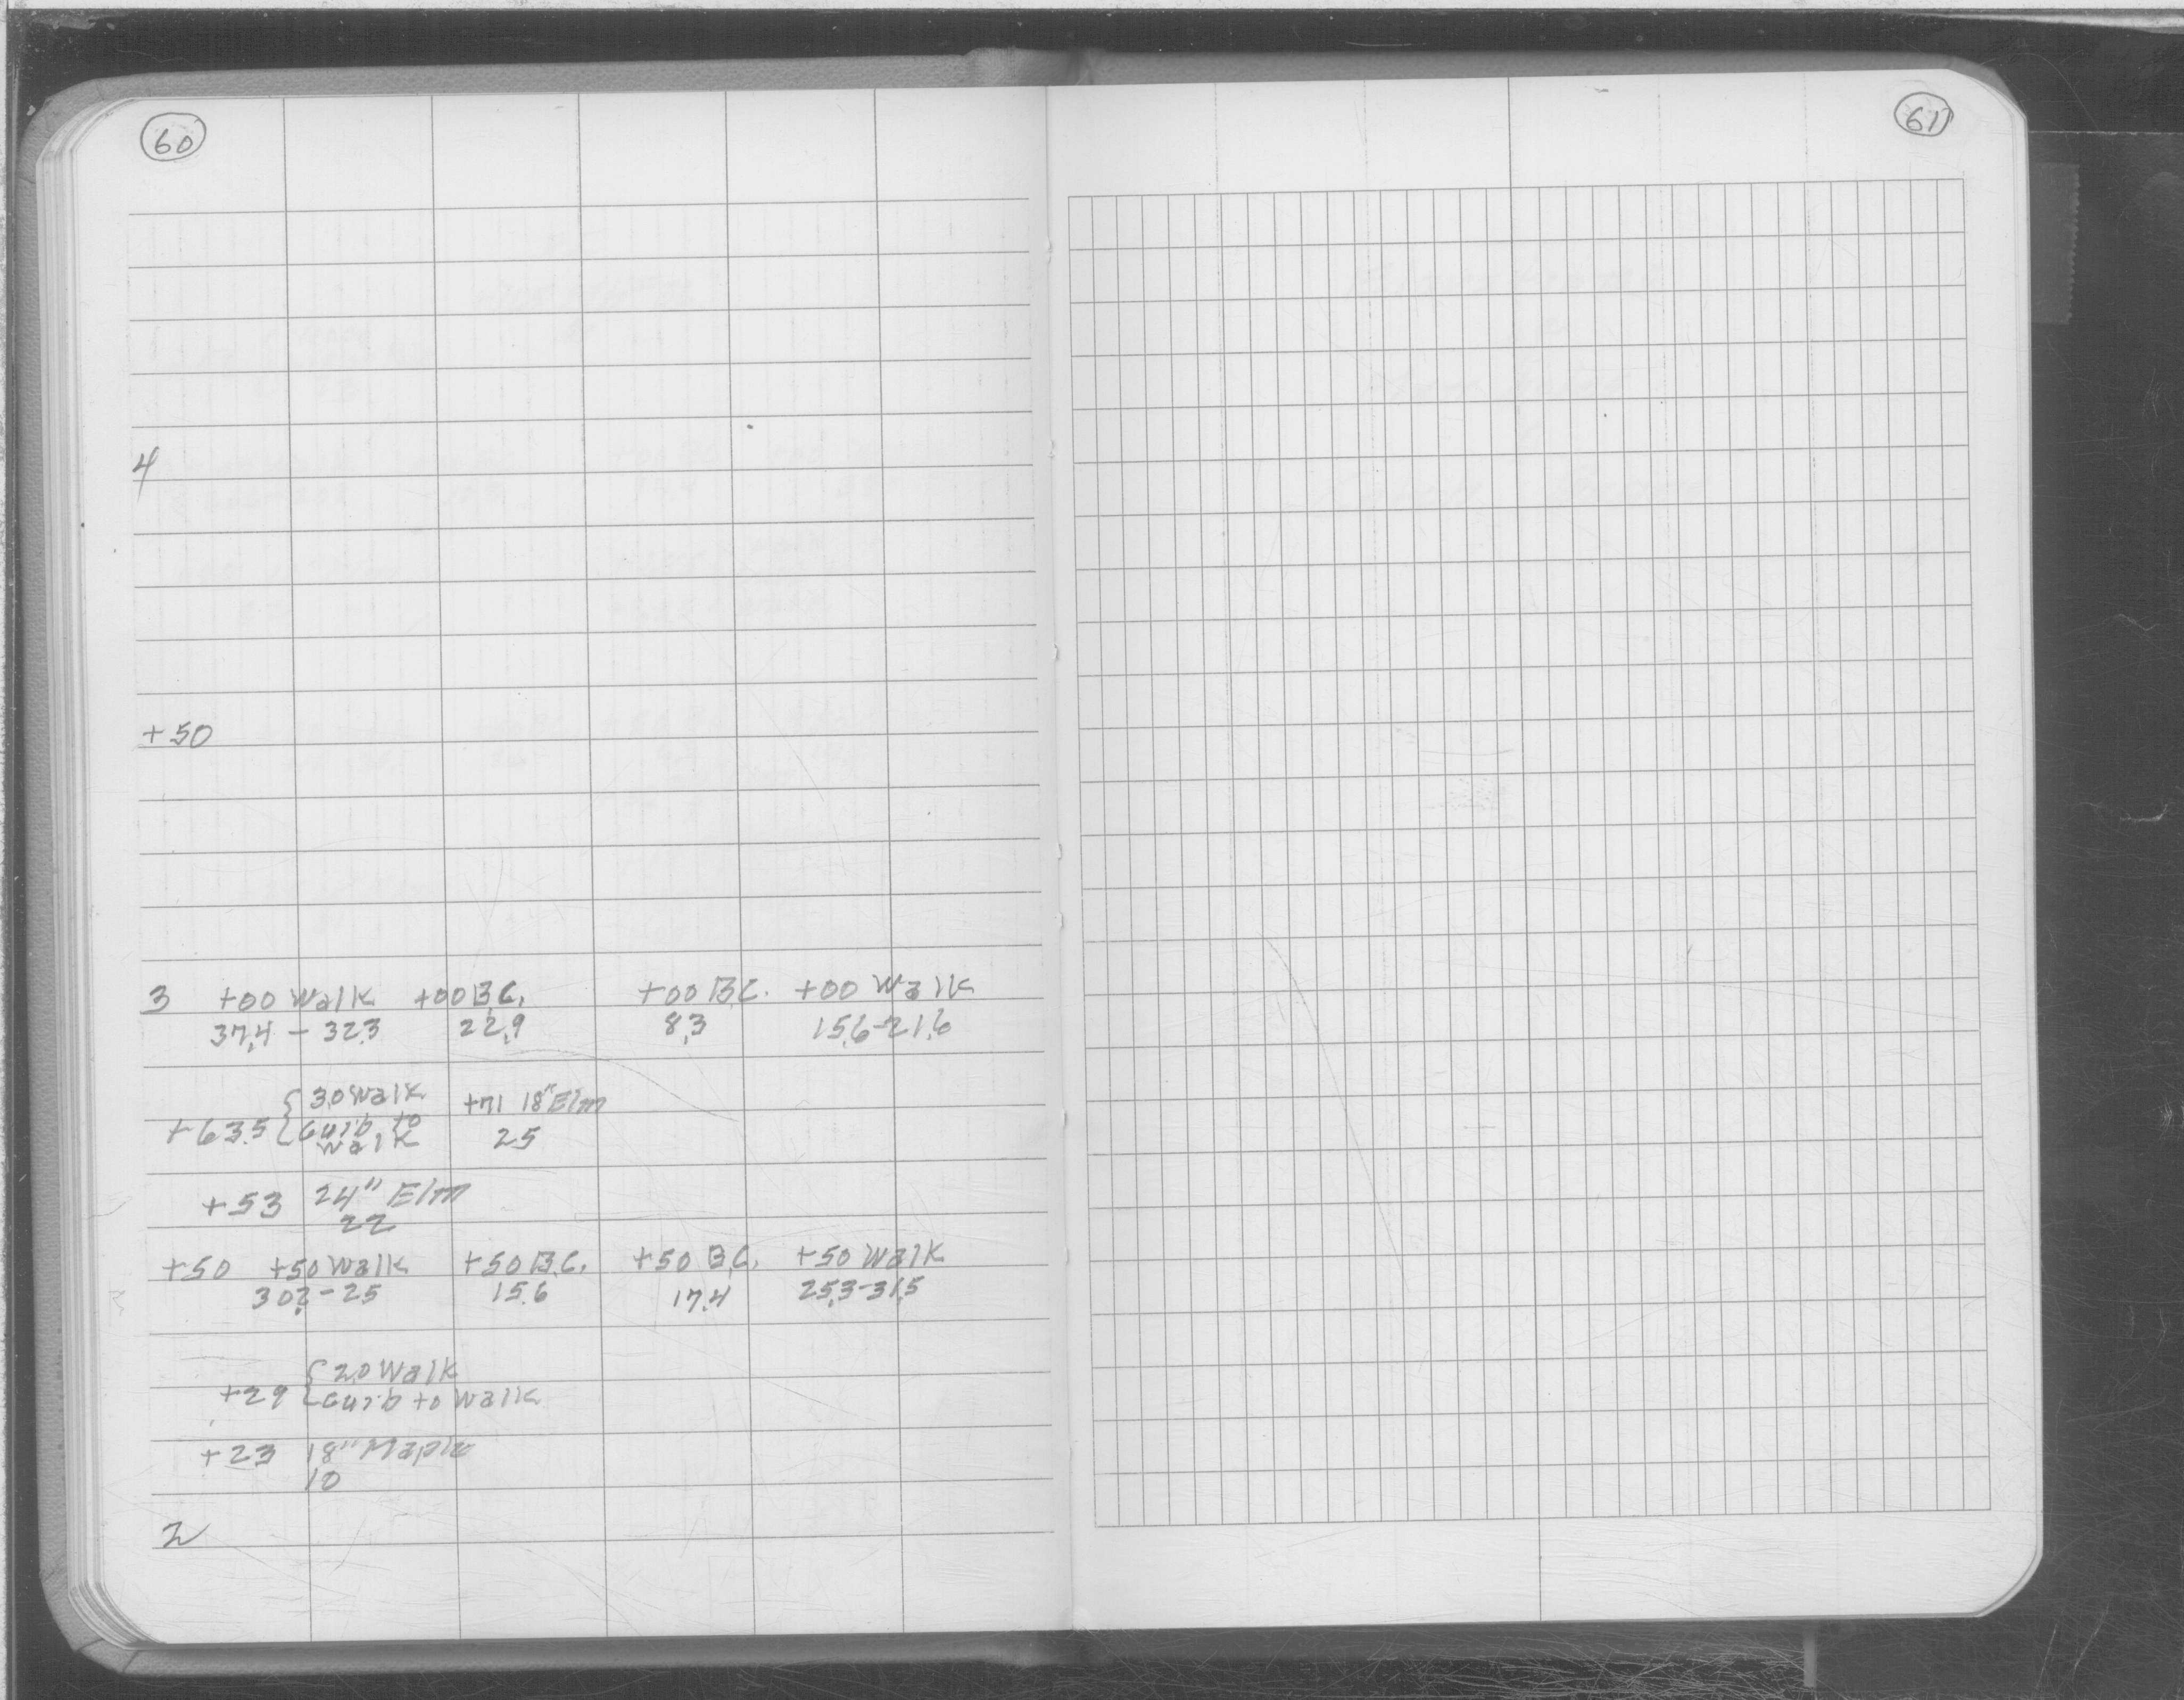 60
61
4
+50
3 +00 Walk +00 B.C. +00 B.C. +00 Walk
37.4 - 32.3 22.9 8.3 15.6-21.6
{ 3.0 Walk +71 18" Elm
+63.5 { Curb to 25
Walk
+53 24" Elm
22
+50 +50 Walk +50 B.C. +50 B.C. +50 Walk
30.2 - 25 15.6 17.4 25.3-31.5
{ 2.0 Walk
+29 { Curb to Walk
+23 18" Maple
10
2